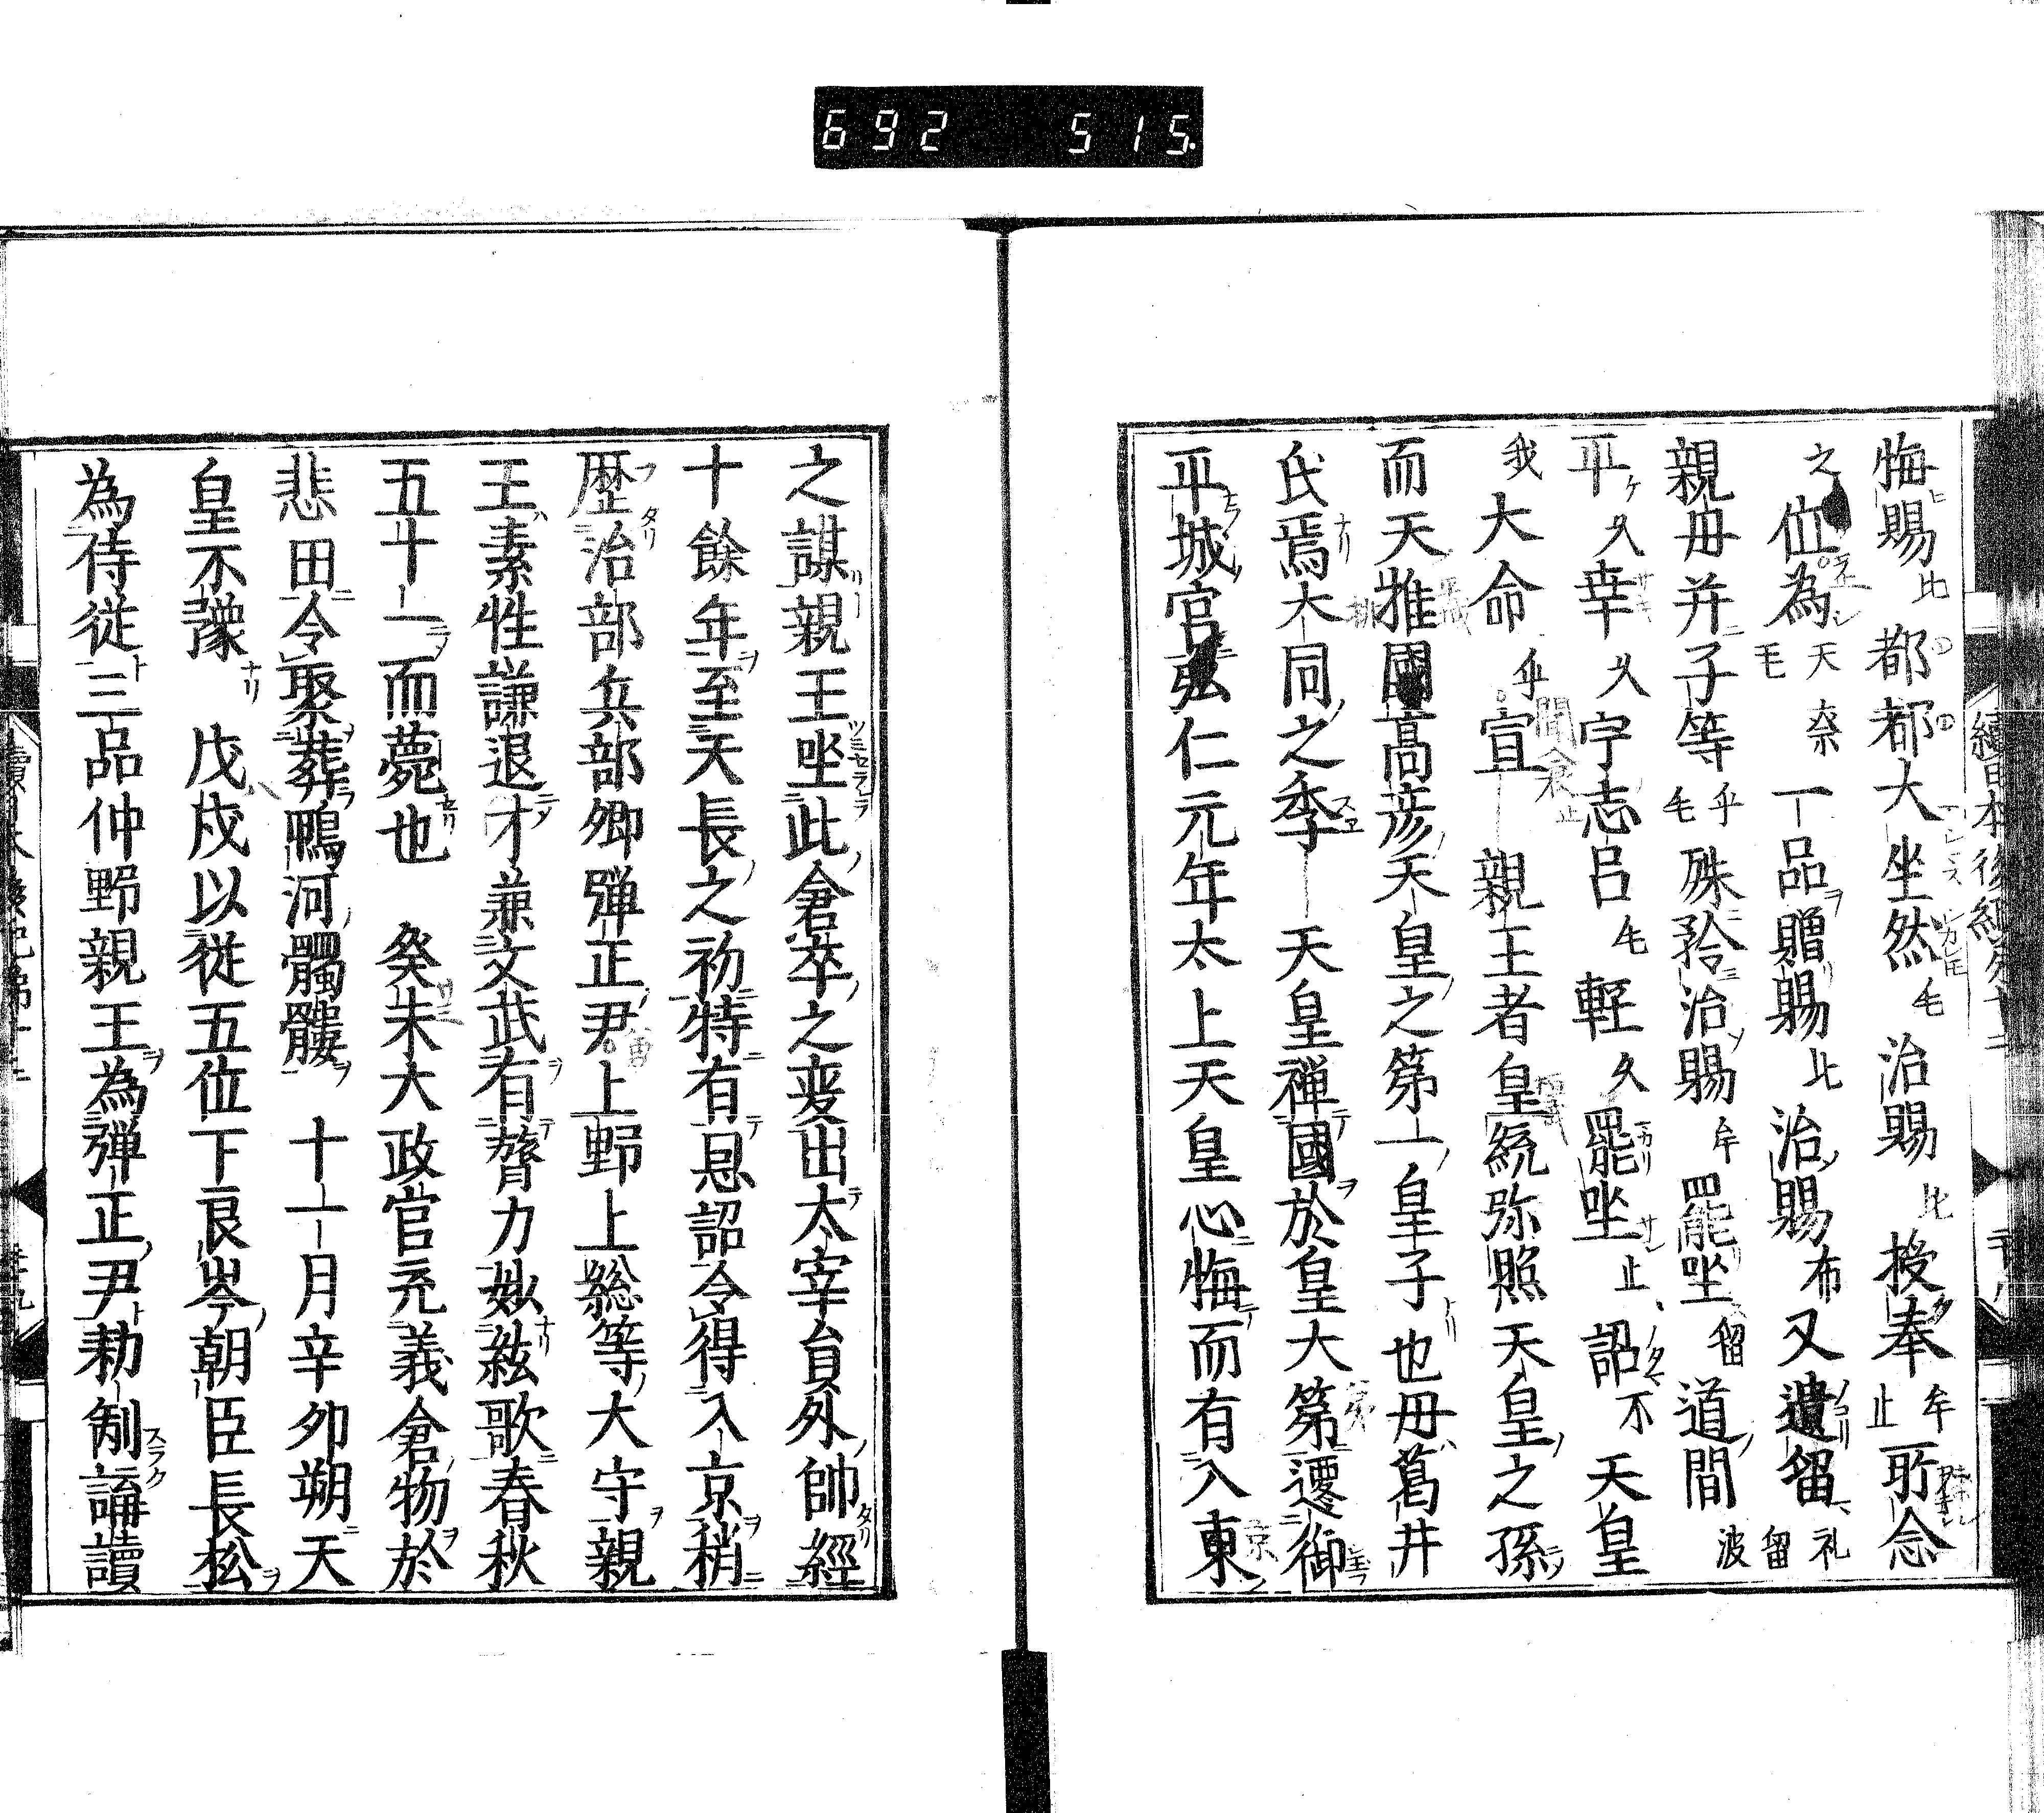 692 515
悔賜比都都大坐然毛治賜比授奉牟止所念
之位為天毛奈一品贈賜比治賜布又遺留礼留波
親毋并子等乎毛殊矜治賜牟罷坐留道間
平久幸久宇志呂毛輕久罷坐止詔不天皇
我大命乎宣親王者皇統弥照天皇之孫
而天推國高彦天皇之第一皇子也毋葛井
氏焉大同之季天皇禅國於皇大第遷御
平城官弘仁元年太上天皇心悔而有入東
之謀親王坐此倉卒之変出太宰員外帥經
十餘年至天長之初特有恩詔令得入京稍
歴治部兵部卿弾正尹上野上総等大守親
王素性謙退才兼文武有膂力妙絃歌春秋
五十一而薨也癸未大政官充義倉物於
悲田令聚葬鴨河髑髏十一月辛卯朔天
皇不豫戊戌以従五位下良岑朝臣長松
為侍従三品仲野親王為弾正尹勅制論讀